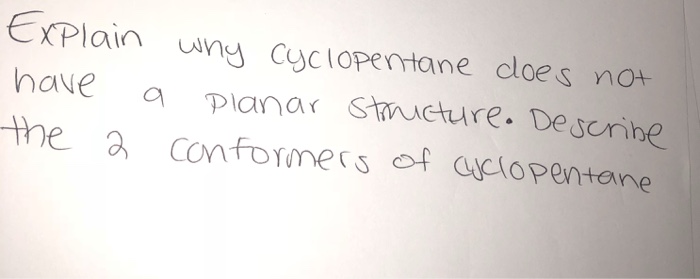 Explain why cyclopentane does not
have a planar structure. Describe
the 2 conformers of cyclopentane